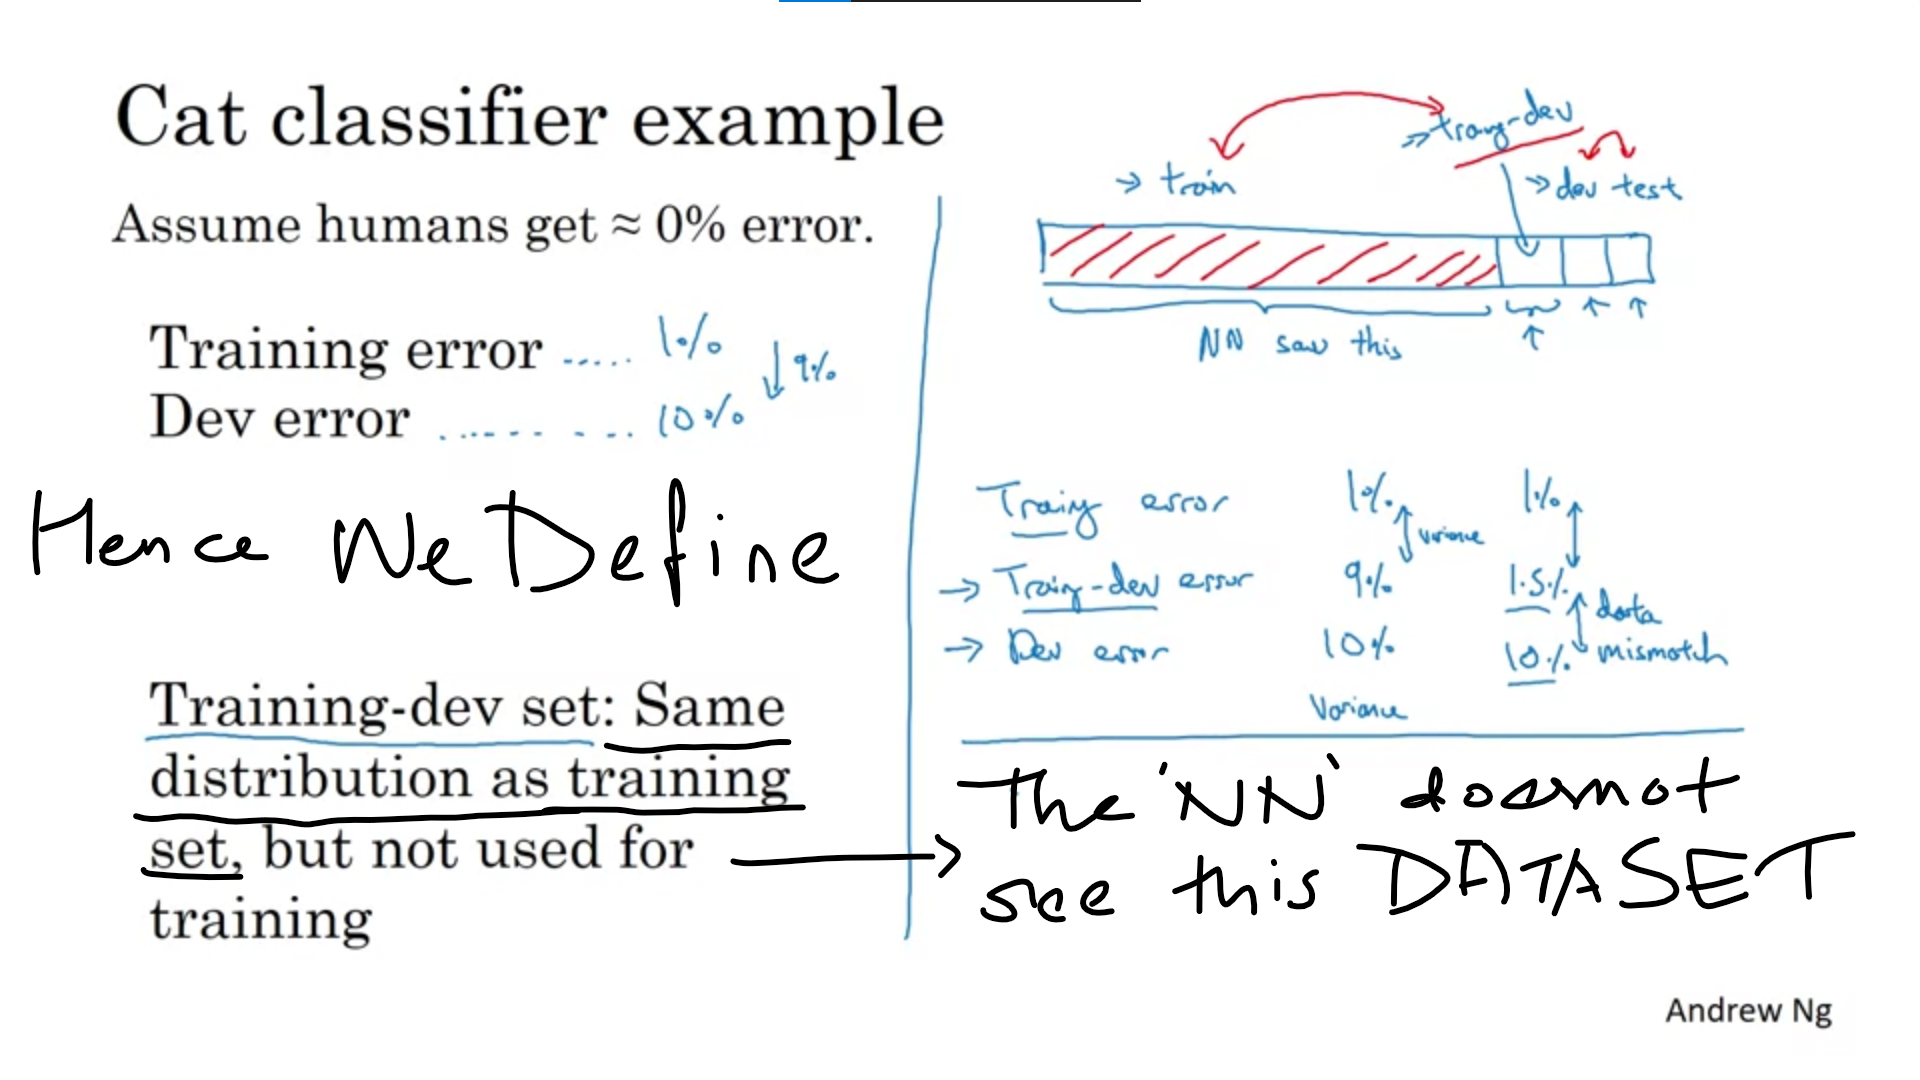 Cat classifier example
Assume humans get ≈ 0% error.
Training error ..... 1%
↓ 9%
Dev error ........ 10%
Hence We Define
Training-dev set: Same
distribution as training
set, but not used for
training
→ train
→ trainy-dev
→ dev test
NN saw this
Trainig error 1% 1%
variance
→ Trainig-dev error 9% 1.5%
data
→ Dev error 10% 10% mismatch
Variance
The 'NN' doesnot
see this DATASET
Andrew Ng